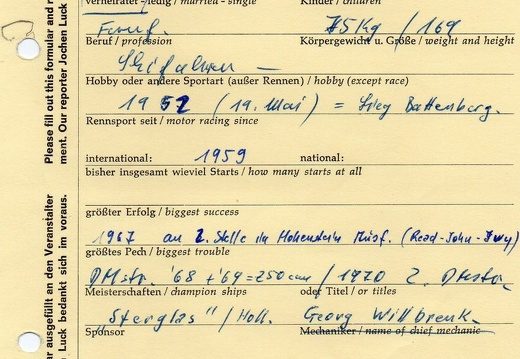 Verheiratet - ledig / married - single Kinder / children
75 kg / 169
Beruf / profession Körpergewicht u. Größe / weight and height
Skifahren —
Hobby oder andere Sportart (außer Rennen) / hobby (except race)
1952 (19. Mai) = Sieg Battenberg.
Rennsport seit / motor racing since
international: 1959 national:
bisher insgesamt wieviel Starts / how many starts at all
größter Erfolg / biggest success
1967 an 2. Stelle in Hohenstein (Read-John-
größtes Pech / biggest trouble
DMstr. '68 + '69 = 250 ccm / 1970 2. DMstr.
Meisterschaften / champion ships oder Titel / or titles
Sterglas" / Holl. Georg Willbrenk
Sponsor Mechaniker / name of chief mechanic
Please fill out this formular and r
ment. Our reporter Jochen Luck
ar ausgefüllt an den Veranstalter
n Luck bedankt sich im voraus.